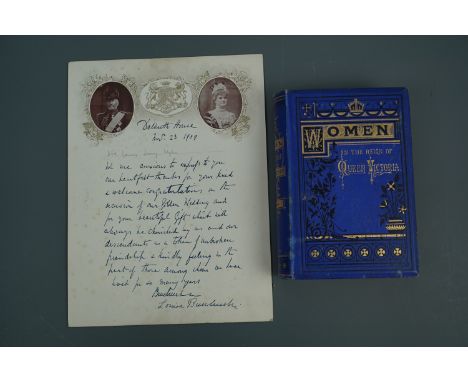 Dalkeith House
Nov. 23 1909
We are anxious to express to you
our heartfelt thanks for your kind
& welcome congratulations on the
occasion of our Golden Wedding and
for your beautiful Gift which will
always be cherished by us and our
descendants as a token of unbroken
friendship & kindly feeling on the
part of those among whom we have
lived for so many years
Buccleuch
Louisa Buccleuch
WOMEN
IN THE REIGN OF
QUEEN VICTORIA